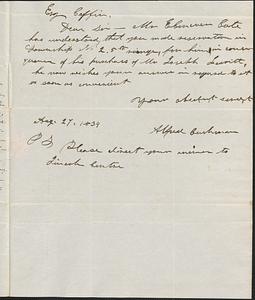 Esq Coffin,
Dear Sir — Mr Ebenezer Cole
has understood, that you made reservation in
Township No 2. 5th range, for him in conse
quence of his purchase of Mr Joseph
he now wishes your answer in regard to it
as soon as convenient
Your obedient servt
Alfred Cushman
Aug. 27, 1839
P S Please direct your answer to
Lincoln Centre